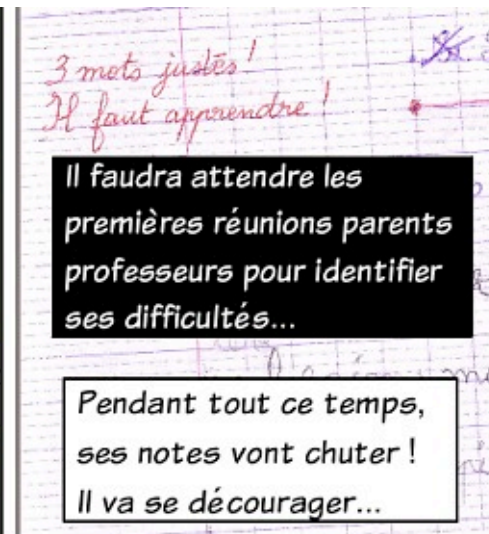 3 mots justes !
Il faut apprendre !
Il faudra attendre les
premières réunions parents
professeurs pour identifier
ses difficultés...
Pendant tout ce temps,
ses notes vont chuter !
Il va se décourager...